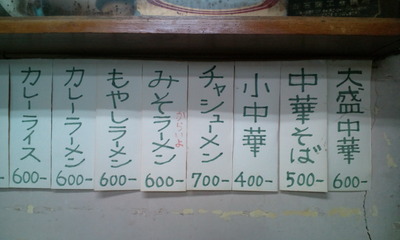 大盛中華
600-
中華そば
500-
小中華
400-
チャシューメン
700-
みそラーメン
からいよ
600-
もやしラーメン
600-
カレーラーメン
600-
カレーライス
600-